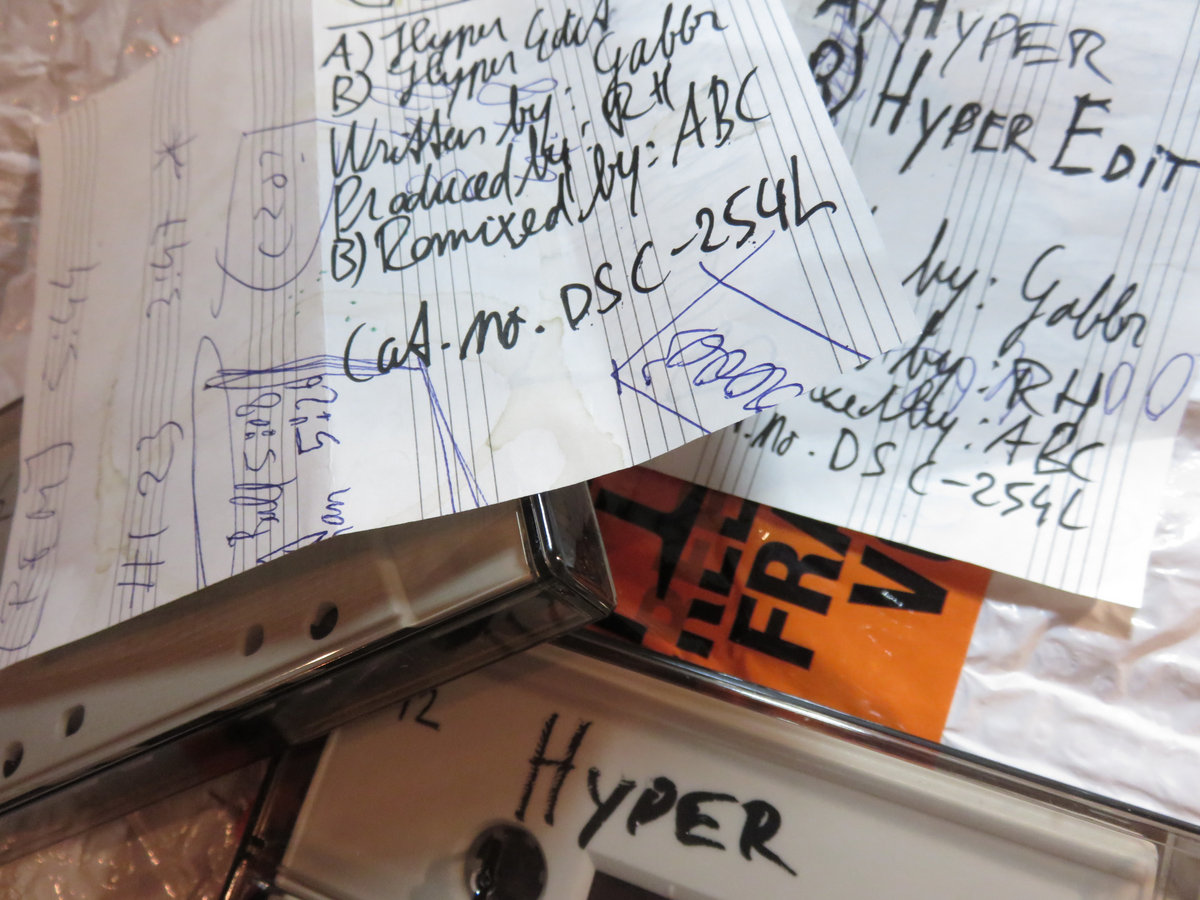 A) Hyper
B) Hyper Edit
Written by: Gabbr
Produced by: RH
B) Remixed by: ABC
Cat. no. DSC-254L
A) HYPER
B) HYPER EDIT
by: Gabbr
by: RH
by: ABC
no. DSC-254L
5:44
3:47 *
#1 23
5:26
FRA
12
HYPER